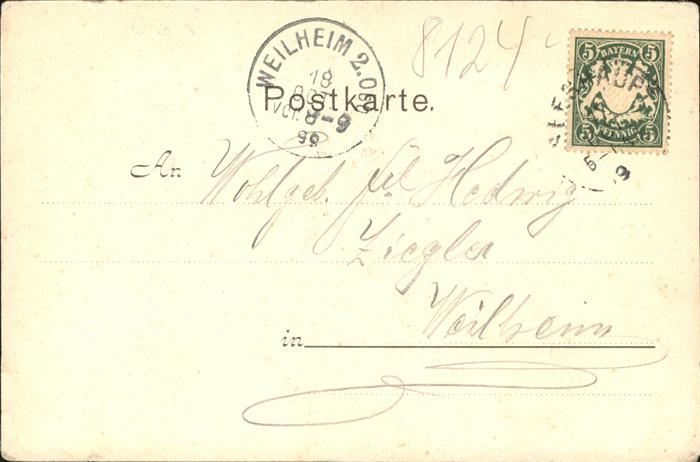 8124
WEILHEIM 2.OB.
18
OCT
VOR. 8-9
99
5 BAYERN 5
5 PFENNIG 5
Postkarte.
An Wohlgeb. Frl Hedwig
Ziegler
in Weilheim